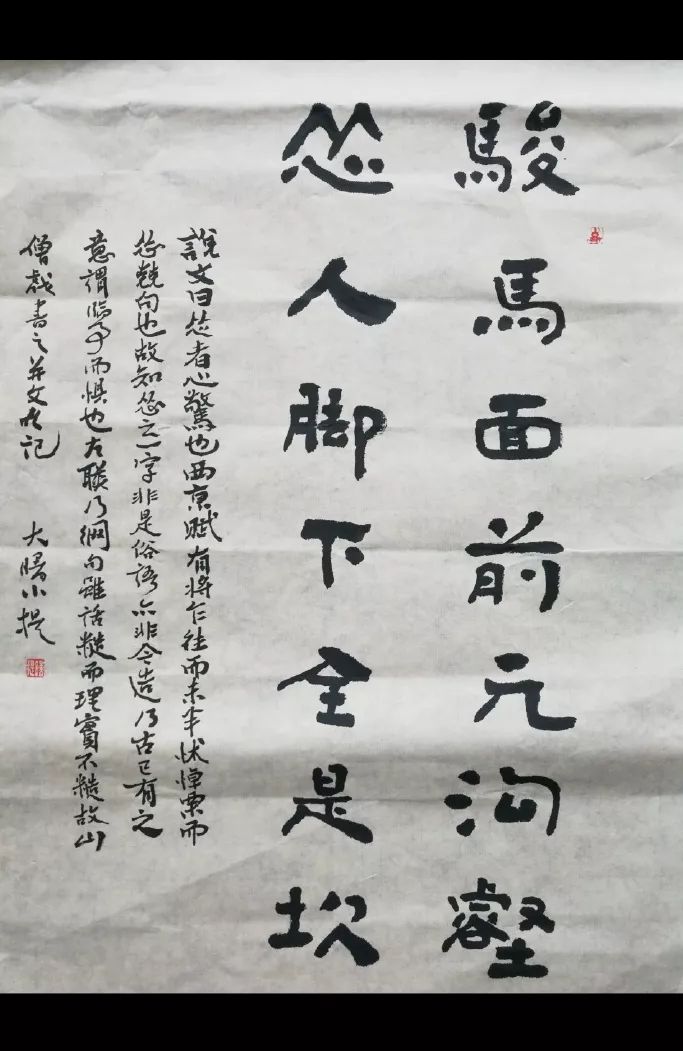 駿馬面前无沟壑
怂人脚下全是坎
說文曰怂者心驚也西京賦有将乍往而未半怵悼栗而
怂兢句也故知怂之一字非是俗语亦非今造乃古已有之
意謂临事而惧也右联乃網句雖話糙而理實不糙故山
僧戏書之并文以記
大曙小提